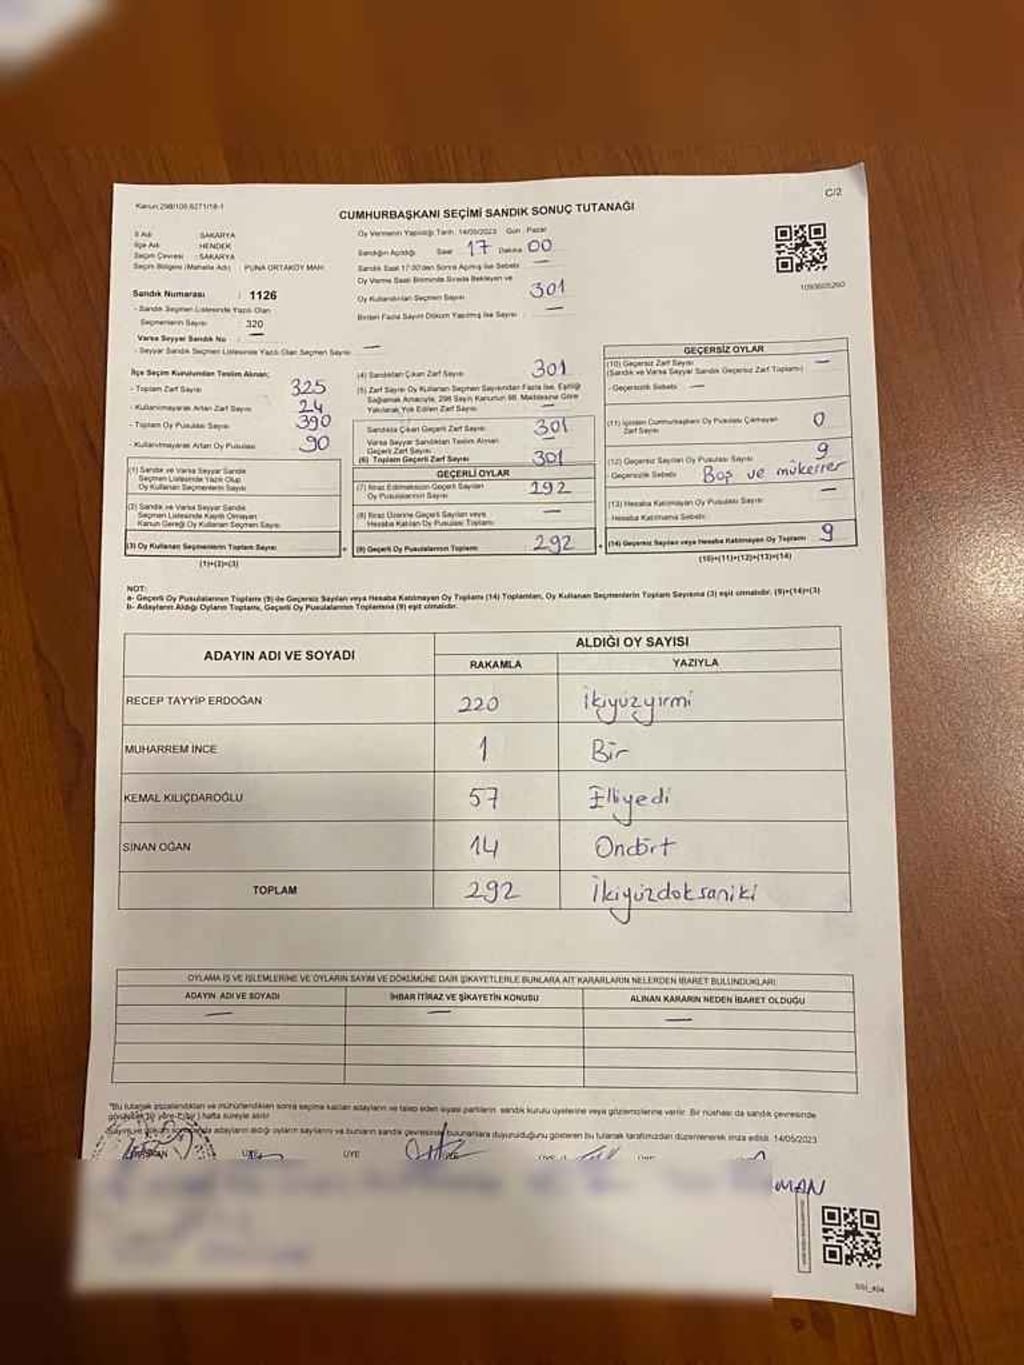 Kanun:298/105,6271/18-1
C/2
CUMHURBAŞKANI SEÇİMİ SANDIK SONUÇ TUTANAĞI
İl Adı : SAKARYA
İlçe Adı : HENDEK
Seçim Çevresi : SAKARYA
Seçim Bölgesi (Mahalle Adı) : PUNA ORTAKÖY MAH.
Sandık Numarası : 1126
- Sandık Seçmen Listesinde Yazılı Olan
Seçmenlerin Sayısı : 320
Varsa Seyyar Sandık No : —
- Seyyar Sandık Seçmen Listesinde Yazılı Olan Seçmen Sayısı : —
Oy Vermenin Yapıldığı Tarih: 14/05/2023 Gün : Pazar
Sandığın Açıldığı Saat 17 Dakika 00
Sandık Saat 17:00'den Sonra Açılmış İse Sebebi : —
Oy Verme Saati Bitiminde Sırada Bekleyen ve
Oy Kullandırılan Seçmen Sayısı : 301
Birden Fazla Sayım Döküm Yapılmış İse Sayısı : —
1093605260
İlçe Seçim Kurulundan Teslim Alınan;
- Toplam Zarf Sayısı : 325
- Kullanılmayarak Artan Zarf Sayısı : 24
- Toplam Oy Pusulası Sayısı : 390
- Kullanılmayarak Artan Oy Pusulası : 90
(1) Sandık ve Varsa Seyyar Sandık
Seçmen Listesinde Yazılı Olup
Oy Kullanan Seçmenlerin Sayısı
(2) Sandık ve Varsa Seyyar Sandık
Seçmen Listesinde Kayıtlı Olmayan
Kanun Gereği Oy Kullanan Seçmen Sayısı
(3) Oy Kullanan Seçmenlerin Toplam Sayısı
(1)+(2)=(3)
(4) Sandıktan Çıkan Zarf Sayısı : 301
(5) Zarf Sayısı Oy Kullanan Seçmen Sayısından Fazla İse, Eşitliği
Sağlamak Amacıyla, 298 Sayılı Kanunun 98. Maddesine Göre
Yakılarak Yok Edilen Zarf Sayısı : —
Sandıkta Çıkan Geçerli Zarf Sayısı : 301
Varsa Seyyar Sandıktan Teslim Alınan
Geçerli Zarf Sayısı : —
(6) Toplam Geçerli Zarf Sayısı : 301
GEÇERLİ OYLAR
(7) İtiraz Edilmeksizin Geçerli Sayılan
Oy Pusulalarının Sayısı : 292
(8) İtiraz Üzerine Geçerli Sayılan veya
Hesaba Katılan Oy Pusulası Toplamı : —
(9) Geçerli Oy Pusulalarının Toplamı : 292
GEÇERSİZ OYLAR
(10) Geçersiz Zarf Sayısı : —
(Sandık ve Varsa Seyyar Sandık Geçersiz Zarf Toplamı)
- Geçersizlik Sebebi : —
(11) İçinden Cumhurbaşkanı Oy Pusulası Çıkmayan
Zarf Sayısı : 0
(12) Geçersiz Sayılan Oy Pusulası Sayısı : 9
-Geçersizlik Sebebi : Boş ve mükerrer
(13) Hesaba Katılmayan Oy Pusulası Sayısı : —
Hesaba Katılmama Sebebi :
(14) Geçersiz Sayılan veya Hesaba Katılmayan Oy Toplamı : 9
(10)+(11)+(12)+(13)=(14)
NOT:
a- Geçerli Oy Pusulalarının Toplamı (9) ile Geçersiz Sayılan veya Hesaba Katılmayan Oy Toplamı (14) Toplamları, Oy Kullanan Seçmenlerin Toplam Sayısına (3) eşit olmalıdır. (9)+(14)=(3)
b- Adayların Aldığı Oyların Toplamı, Geçerli Oy Pusulalarının Toplamına (9) eşit olmalıdır.
ADAYIN ADI VE SOYADI
ALDIĞI OY SAYISI
RAKAMLA YAZIYLA
RECEP TAYYİP ERDOĞAN 220 İkiyüzyirmi
MUHARREM İNCE 1 Bir
KEMAL KILIÇDAROĞLU 57 Elliyedi
SİNAN OĞAN 14 Ondört
TOPLAM 292 İkiyüzdoksaniki
OYLAMA İŞ VE İŞLEMLERİNE VE OYLARIN SAYIM VE DÖKÜMÜNE DAİR ŞİKAYETLERLE BUNLARA AİT KARARLARIN NELERDEN İBARET BULUNDUKLARI
ADAYIN ADI VE SOYADI İHBAR İTİRAZ VE ŞİKAYETİN KONUSU ALINAN KARARIN NEDEN İBARET OLDUĞU
— — —
*Bu tutanak imzalandıktan ve mühürlendikten sonra seçime katılan adayların ve talep eden siyasi partilerin sandık kurulu üyelerine veya gözlemcilerine verilir. Bir nüshası da sandık çevresinde
hafta süreyle asılır.
adayların aldığı oyların sayılarını ve bunların sandık çevresinde bulunanlara duyurulduğunu gösteren bu tutanak tarafımızdan düzenlenerek imza edildi. 14/05/2023
ÜYE